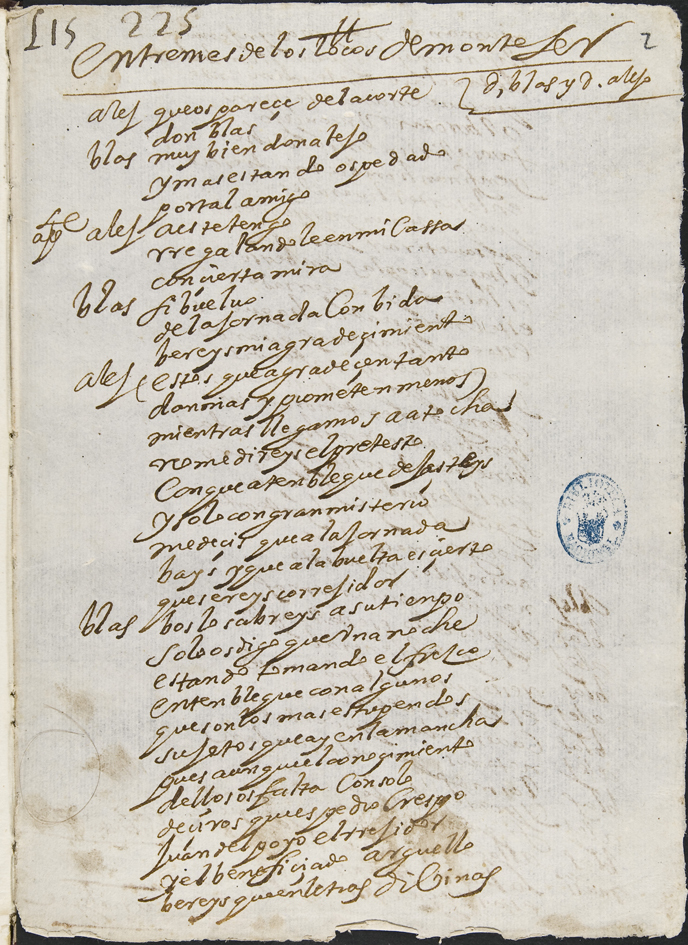 L15 225
entremes de los locos de monteser 2
d, blas y d. alejo
alej que os pareçe de la corte
don blas
blas muy bien don alejo
y mas estando ospedado
por tal amigo
alej a este tengo
rregalandole en mi Cassa
con çierta mira
blas si buelvo
de la jornada Con bida
bereys mi agradeçimiento
alej (estos que agradeçen tanto
dan mas y prometen menos)
mientras llegamos a atocha
no me direys el pretesto
Con que a tenbleque dejasteys
y solo con gran misterio
me deçis que a la jornada
bays y que a la buelta es çierto
que sereys correjidor
blas bos lo sabreys a su tienpo
solo os digo que una noche
estando tomando el fresco
en tenbleque con algunos
que son los mas estupendos
sujetos que ay en la mancha
pues aunque el conoçimiento
dellos os falta Con solo
deçiros que es pedro Crespo
juan del poyo el rrejidor
y el benefiçiado arguello
bereys que en letras diVinas
BIBLIOTECA NACIONAL